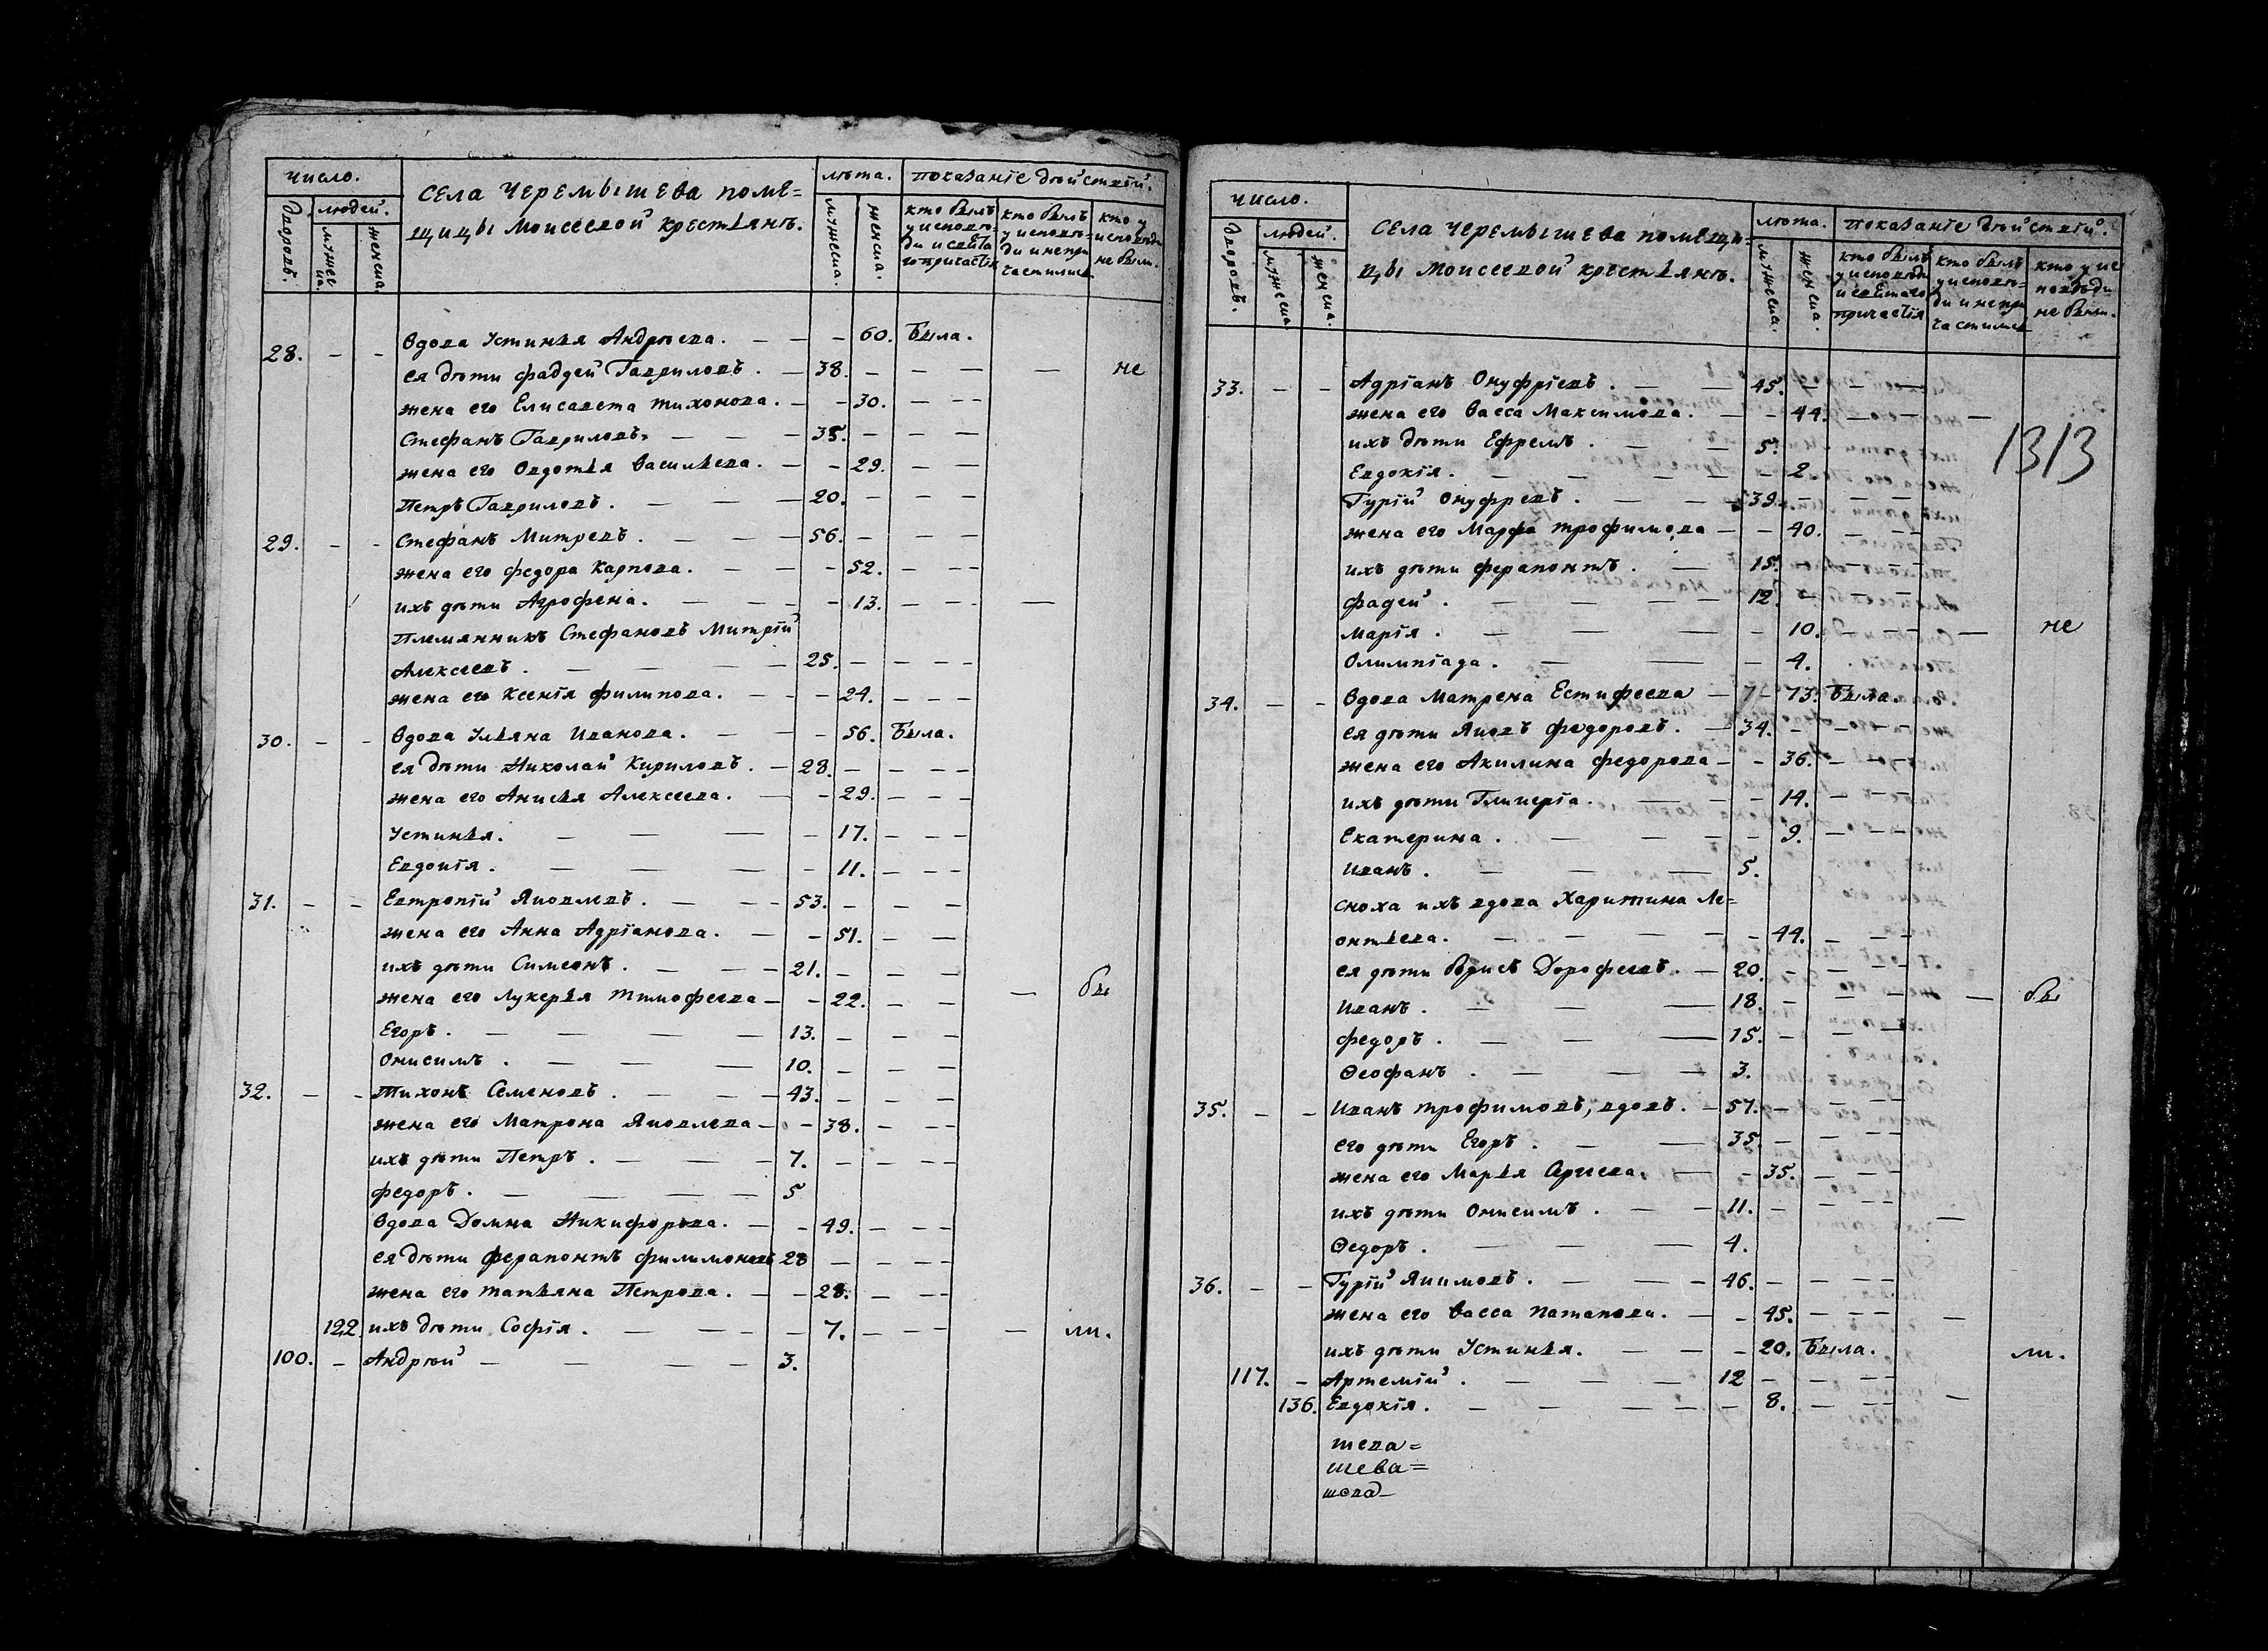 число.
села Черемышева поме=
щицы Моисеевой крестьянъ.
лѣта.
показанїе дѣйствїй.
дворовъ.
людей.
мужеска.
женска.
мужеска.
женска.
кто былъ у исповѣ=
ди и свята=
го причастїя
кто былъ
у исповѣ=
ди и не при
частился
кто у
исповѣди
не были.
28. – – Вдова Устинья Андрѣева. – – – 60. Была.
ея дѣти Фаддей Гавриловъ. – 38. – – – — не
жена его Елисавета Тихонова. – – 30. – – –
Стефанъ Гавриловъ. – – – 35. – – –
жена его Овдотья Васильева. – – 29. – –
Петръ Гавриловъ. – – – 20. – – –
29. – – Стефанъ Митревъ. – – – 56. – – –
жена его Федора Карпова. – – – 52. – – –
ихъ дѣти Агрофена. – – – – 13. – – – —
Племянникъ Стефановъ Митрїй
Алексеевъ. – – – – 25. – – – –
жена его Ксенїя Филипова. – – – 24. – – –
30. – – Вдова Ульяна Иванова. – – – 56. Была.
ея дѣти Николай Кириловъ. – 28. – – – –
жена его Анисья Алексеева. – – 29. – – –
Устинья. – – – – 17. – – –
Евдокїя. – – – – 11. – – –
31. – – Евтропїй Яковлевъ. – – – 53. – – –
жена его Анна Адрїанова. – – 51. – –
ихъ дѣти Симеонъ. – – – 21. – – –
жена его Лукерья Тимофеева – – 22. – – — бы
Егоръ. – – – – 13. – – –
Онисимъ. – – – 10. – – –
32. – – Тихонъ Семеновъ. – – – 43. – – –
жена его Матрона Яковлева – – 38. – – –
ихъ дѣти Петръ. – – – 7. – – – –
Федоръ. – – – – 5
Вдова Домна Никифорова. – – 49. – – –
ея дѣти Ферапонтъ Филимоновъ 28 – – – –
жена его Татьяна Петрова. – – 28. – – –
122. ихъ дѣти Софїя. – – – – 7. – – – — ли.
100. – Андрѣй – – – – 3.
число.
села Черемышева помещи=
цы Моисеевой крестьянъ.
лѣта.
показанїе дѣйствїй.
дворовъ.
людей.
мужеска
женска.
мужеска.
женска.
кто былъ
у исповѣди
и святаго
причастїя
кто былъ
у исповѣ=
ди и не при
частился
кто у ис
повѣди
не были.
33. – – Адрїанъ Онуфрїевъ. – – 45. – – —
жена его Васса Максимова. – – 44. – – —
1313
ихъ дѣти Ефремъ. – – 5.
Евдокїя. – – – – – 2.
Гурїй Онуфревъ. – – – 39. – – –
жена его Марфа Трофимова – – 40. – – –
ихъ дѣти Ферапонтъ. – 15. – – – –
Фадей. – – – – 12. – – –
Марїя. – – – – 10. – – – — не
Олимпїада. – – – 4.
34. – – Вдова Матрена Естифеева – – 73. Была.
ея дѣти Яковъ Федоровъ. – 34. – – – –
жена его Акилина Федорова – – 36. – – –
ихъ дѣти Гликерїа. – – – 14. – – –
Екатерина. – – – – 9. – – –
Иванъ. – – – 5.
сноха ихъ вдова Харитина Ле=
онтьева. – – – – – 44. – – –
ея дѣти Борисъ Дорофеевъ. – 20. – – – –
Иванъ. – – – 18. – – – — бы
Федоръ. – – – 15. – – –
Ѳеофанъ. – – – 3.
35. – – Иванъ Трофимовъ, вдовъ. – 57. – – – –
его дѣти Егоръ. – – 35. – – – –
жена его Марья Сергеева. – – 35. – – –
ихъ дѣти Онисимъ. – – 11. – – – – —
Ѳедоръ. – – – 4.
36. – – Гурїй Якимовъ. – – – 46. – – – –
жена его Васса Патапова. – – 45. – – – —
ихъ дѣти Устинья. – – – 20. Была. ли.
117. – Артемїй. – – – – 12 – – – –
136. Евдокїя. – – – – – 8. – – – —